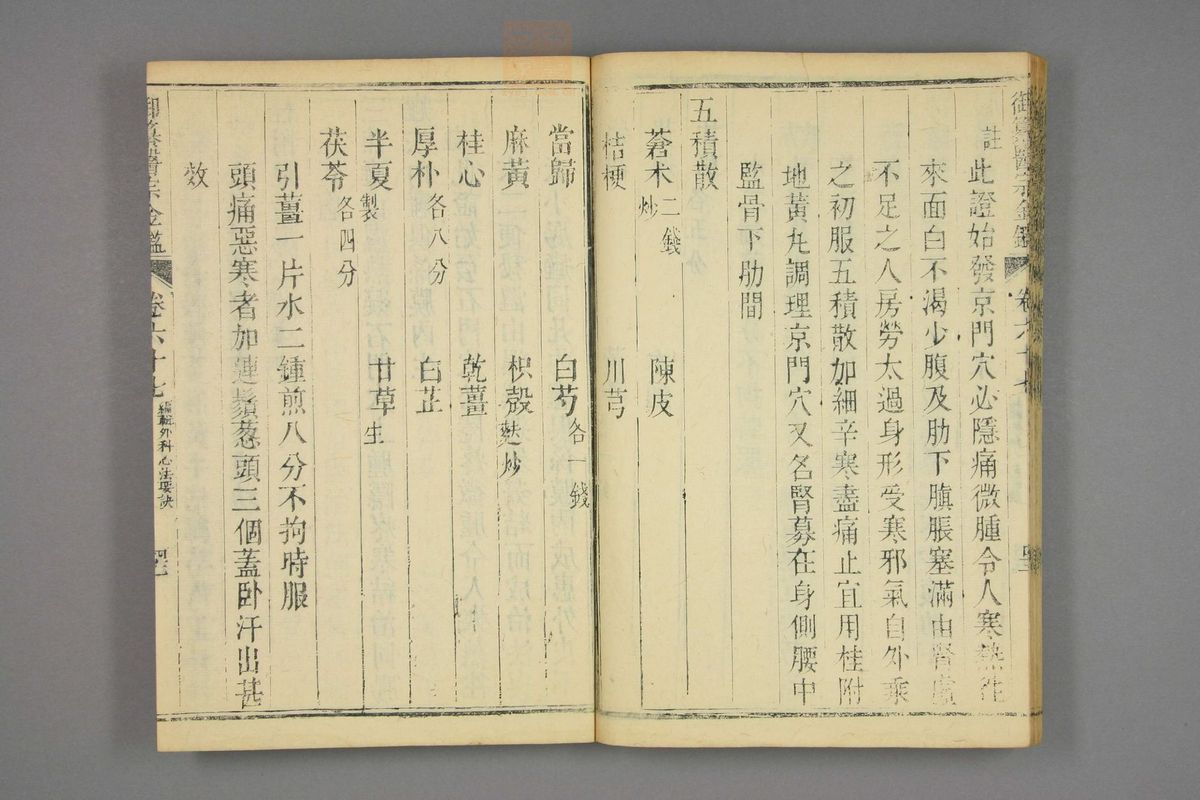 御纂醫宗金鑑
卷六十七
註
此證始發京門穴必隱痛微腫令人寒熱往
來面白不渴少腹及肋下䐜脹塞滿由腎虛
不足之人房勞太過身形受寒邪氣自外乘
之初服五積散加細辛寒盡痛止宜用桂附
地黃丸調理京門穴又名腎募在身側腰中
監骨下肋間
五積散
蒼朮二錢炒 陳皮
桔梗 川芎
當歸 白芍各一錢
麻黃 枳殼麩炒
桂心 乾薑
厚朴各八分 白芷
半夏製 甘草生
茯苓各四分
引薑一片水二鍾煎八分不拘時服
頭痛惡寒者加連鬚葱頭三個蓋卧汗出甚
效
御纂醫宗金鑑
卷六十七
編輯外科心法要訣